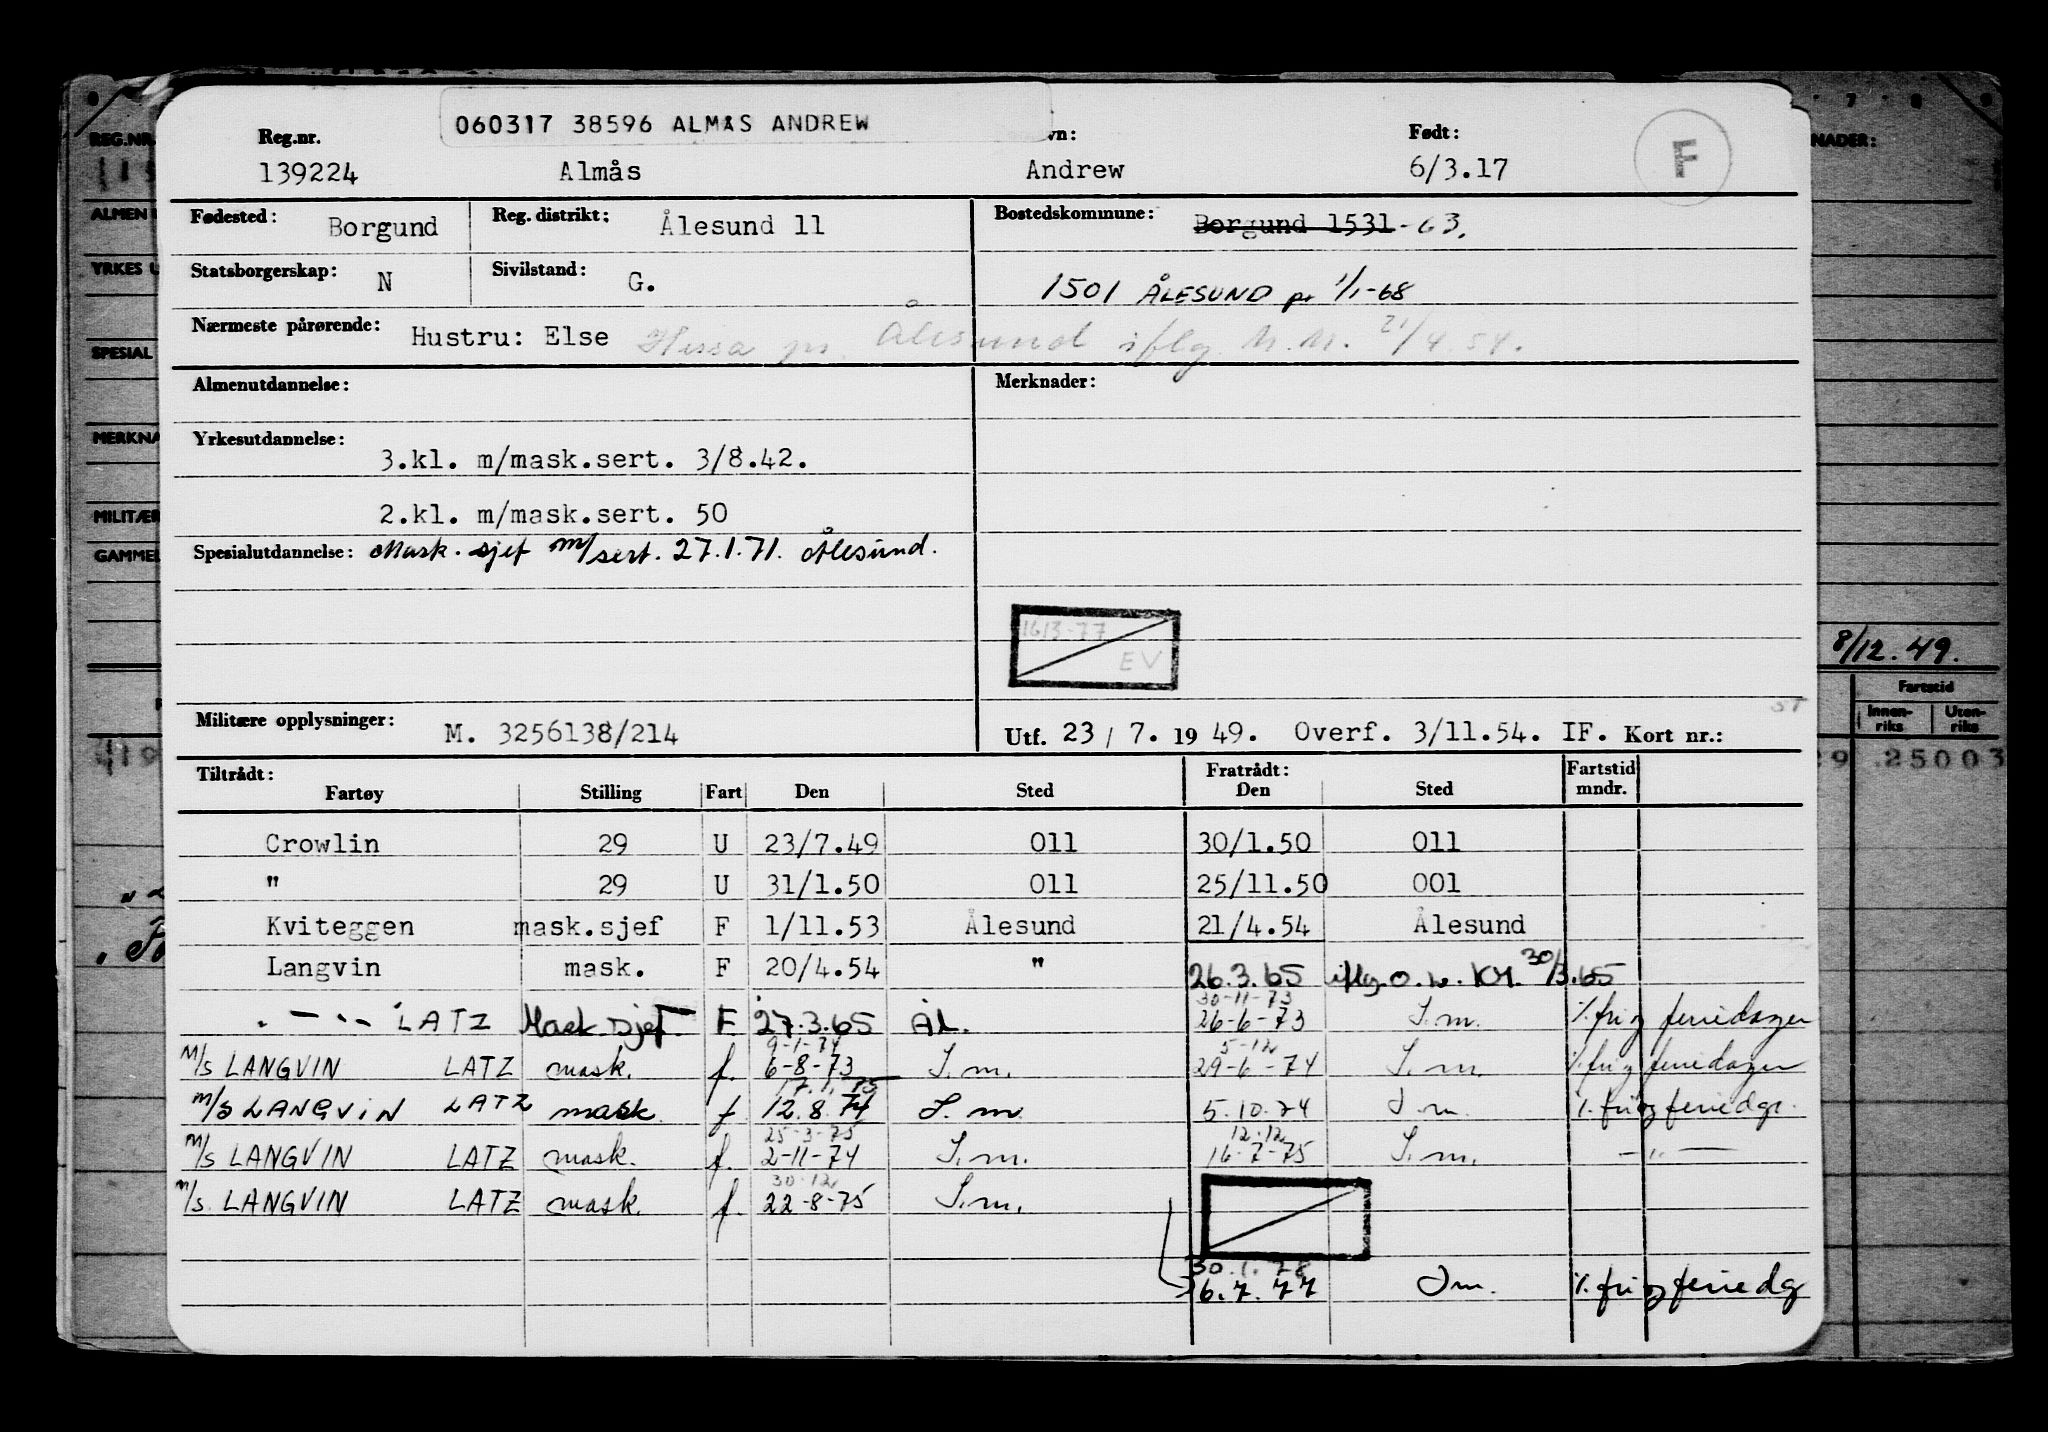 060317 38596 ALMAS ANDREW
REG.NR. Reg.nr. vn: Født: F NADER:
139224 Almås Andrew 6/3.17
ALMEN
Fødested: Borgund Reg. distrikt; Ålesund 11 Bostedskommune: Borgund 1531-63.
YRKES
Statsborgerskap: N Sivilstand: G. 1501 ÅLESUND pr 1/1-68
SPESIAL
Nærmeste pårørende: Hustru: Else Hessa pr. Ålesund iflg M.M. 21/4.54.
Almenutdannelse: Merknader:
MERKNA
Yrkesutdannelse:
3.kl. m/mask.sert. 3/8.42.
MILITÆR
2.kl. m/mask.sert. 50
GAMMEL
Spesialutdannelse: Mask. sjef m/sert. 27.1.71. Ålesund.
1613-77
EV
8/12.49.
Fartstid
Innen-riks Uten-riks
Militære opplysninger: M. 3256138/214 Utf. 23/7. 1949. Overf. 3/11.54. IF. Kort nr.:
29 .25003
Tiltrådt: Fratrådt: Fartstid
Fartøy Stilling Fart Den Sted Den Sted mndr.
Crowlin 29 U 23/7.49 011 30/1.50 011
" 29 U 31/1.50 011 25/11.50 001
Kviteggen mask.sjef F 1/11.53 Ålesund 21/4.54 Ålesund
Langvin mask. F 20/4.54 " 26.3.65 iflg. o.w. KM. 30/3.65
30-11-73
- " - LATZ Mask sjef F 27.3.65 ÅL. 26-6-73 S.m. %.fri og feriedager
9-1-74 5-12
M/S LANGVIN LATZ mask. f. 6-8-73 S.m. 29-6-74 S.m. %.fri og feriedager
17.1.75
M/S LANGVIN LATZ mask f 12.8.74 S.m. 5.10.74 S.m. %.fri og feriedgr.
25-3-75 12-12
M/S LANGVIN LATZ mask. f. 2-11-74 S.m. 16-7-75 S.m. - " -
30-12
M/S. LANGVIN LATZ mask. f. 22-8-75 S.m.
30.1.78
6.7.77 S.m. %.fri og feriedg